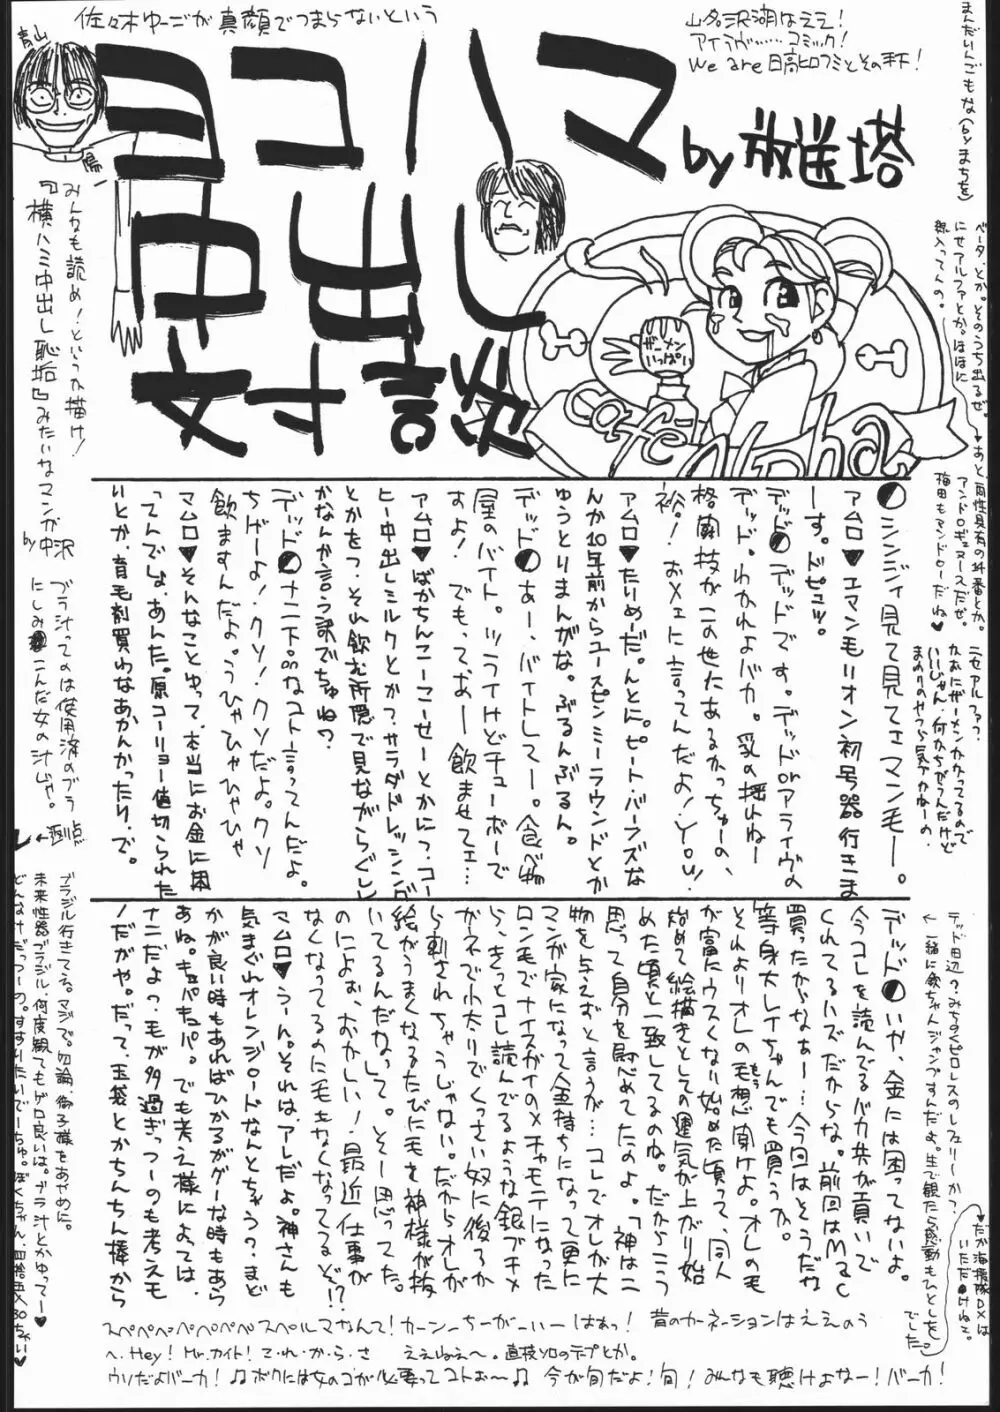 佐々木ゆーごが真顔でつまらないという
ヨコハマ
中出し
対談
by 放送塔
山名沢湖はええ!
アイラヴ……コミック!
We are 日高ヒロフミとその手下!
まんだいんごもな(byまちを)
青山
みんなも読め!というか描け!
『横ハミ中出し恥垢』みたいなマンが
by 中沢
ザーメン
いっぱい
café Alpha
ベータ、とか。そのうち出るぜ。
にせアルファとか。ははに
アンドロギュヌースだぜ。
梅田もマンドローだね♥
ニセアルファっ?
かおにザーメンかかってるので
いいじゃん。何かちがうんだけど
ブラ汁ってのは使用済のブラ
こんだ女の汁じゃ。
シンジィ見て見てェマン毛ー。
アムロ♥エマン毛リオン初号器行きま
ーす。ドピュッ。
デッド デッドです。デッドorアライヴの
デッド。わかれよバカ。乳の揺れねー
格闘技がこの世にあるかっちゅーの、
裕!おメェに言ってんだよ!You!
アムロ♥たいめだ。んとに。ピート・バーンズな
んか10年前からユースピンミーラウンドとか
ゆうとりまんがな。ぶるんぶるん。
デッド あー、バイトしてー。食べ物
屋のバイト。ツライけどチューボーで
すよ! でもって、あー飲ませてェ…
アムロ♥ばかちんこーこーせーとかにっ、コー
ヒー中出しミルクとかっ、サラダドレッシング
とかをっ、それ飲む所隠で見ながらぐしし
かなんか言う訳でちゅね?
デッド ナニ下品なコト言ってんだよ。
ちげーよ!クソ!クソだよ。クソ
飲ますんだよ。うひゃひゃひゃ
マムロ♥そんなことゆって、本当にお金に困
ってんでしょ、あんた。原コーリョー値切られた
いとか、育毛剤買わなあかんかったり、で。
デッド いや、金には困ってないよ。
今コレを読んでるバカ共が貢いで
くれてるハズだからな。前回はMac
買ったかなぁー…今回はとうだな
等身大レイちゃんでも買うか。
それよりオレの毛想聞けよ。オレの毛
が富にウスくなり始めた頃って、同人
始めて絵描きとしての運気が上がり始
めた頃と一致してるのね。だからこう
思って自分を慰めてたのよ。「神は二
物を与えずと言うが…コレでオレが大
マンガ家になって金持ちになって更に
ロン毛でナイスガイのメチャモテになった
ら、きっとコレ読んでるような銀ブチメ
ガネで小太りでくっさい奴に後ろか
ら刺されちゃうじゃない。だからオレが
絵がうまくなるたびに毛を神様が抜
いてるんだなって。そー思ってた。
のによぉ、おかしい!最近仕事が
なくなってるのに毛もなくなってるぞ!?
マムロ♥うーん。それは、アレだよ。神さんも
気まぐれオレンジロードなんとちゃう?まど
かが良い時もあればひかるがグーな時もあら
あね。キュパキュパ。でも考え様によっては、
ナニだよっ、毛が多過ぎっつーのも考えも
ノだがや。だって、玉袋とかちんちん棒から
ブラジル行きてえる。マジで。勿論、御子様をあやめに。
未来性器ブラジル、何度観てもゲロ良いは。ブラ汁とかゆってー♥
デッド田辺?みちのくプロレスのレフェリーかっ?
一緒に飲ちゃんジャンプすんだよ。生で観たら感動もひとしをで
でした。
だが海援隊DXは
いただけねえ。
スペペペペペペペスペルマなんて!カーンーちーがーいーはぁっ! 昔のカーネーションはええのう
へ、Hey! Mr.カイト!マ・れ・か・ら・さ ええねえ〜。直枝ソロのテープとか。
ウソだよバーカ!♫ボクには女のコが必要ってコトぉ〜♫ 今が旬だよ!旬!みんなも聴けよなー!バーカ!